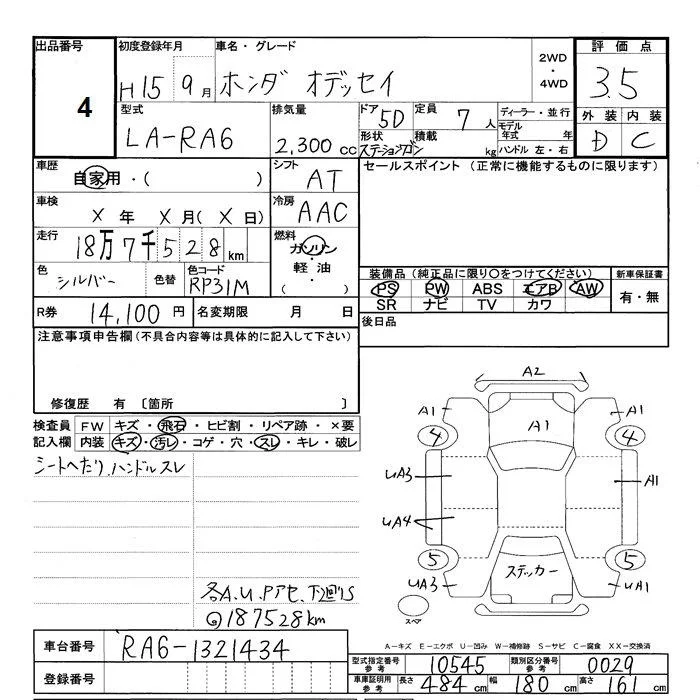 出品番号 初度登録年月 車名・グレード 2WD・4WD 評価点
4 H15 9月 ホンダ オデッセイ 3.5
型式 排気量 ドア 5D 定員 7人 ディーラー・並行 外装 内装
LA-RA6 2,300cc 形状 ステーションワゴン 積載 kg モデル年式 年 D C
ハンドル 左・右
車歴 自家用・( ) シフト AT セールスポイント (正常に機能するものに限ります)
車検 X年 X月(X日) 冷房 AAC
走行 18万7千528km 燃料 ガソリン
軽油・( )
色 シルバー 色替 色コード RP31M
装備品(純正品に限り○をつけてください) 新車保証書
PS PW ABS エアB AW 有・無
SR ナビ TV カワ
R券 14,100円 名変期限 月 日 後日品
注意事項申告欄(不具合内容等は具体的に記入して下さい)
修復歴 有 〔箇所 〕
検査員 FW キズ・飛石・ヒビ割・リペア跡・×要
記入欄 内装 キズ・汚レ・コゲ・穴・スレ・キレ・破レ
シートへたり、ハンドルスレ
各A.U.Pアセ、下廻リS
@187528km
A2
A1 A1 A1
4 4
UA3 A1
UA4
5 ステッカー 5
UA3 UA1
スペア
A-キズ E-エクボ U-凹み W-補修跡 S-サビ C-腐食 XX-交換済
車台番号 RA6-1321434
登録番号
型式指定番号参考 10545 類別区分番号参考 0029
車庫証明用参考 長さ 484cm 幅 180cm 高さ 161cm